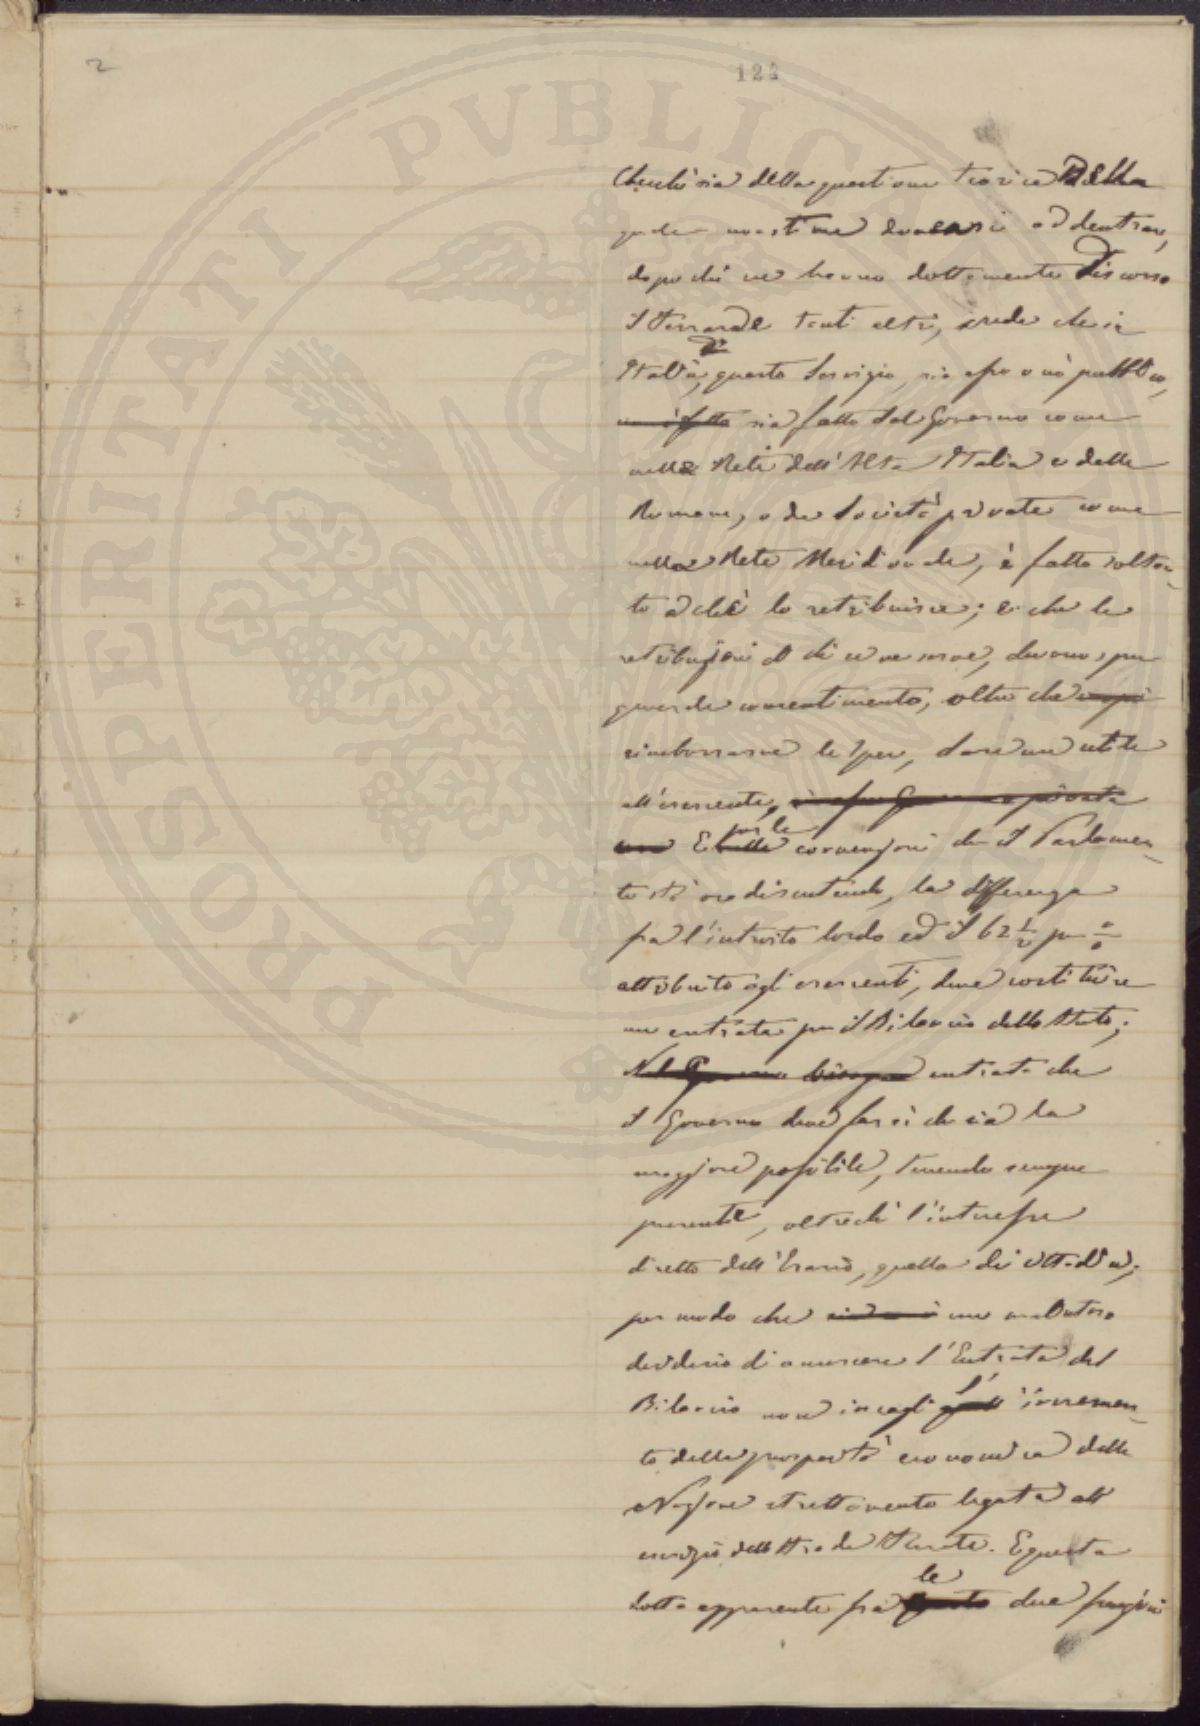 2
124
PROSPERITATI PVBLICAE
Checché sia della questione teorica della
quale non è mestieri addentrarsi,
dopo che ne hanno dottamente discorso
il Ferrara e tanti altri, credo che in
Italia, questo servizio, sia esso o nò pubblico,
sia fatto dal Governo come
nelle Reti dell'Alta Italia e delle
Romane, o da Società private come
nella Rete Meridionale, è fatto soltan-
to a chi lo retribuisce; e che le
retribuzioni di chi se ne serve, devono, per
generale consentimento, oltre che
rimborsarne le spese, dare un utile
all'esercente,
E per le convenzioni che il Parlamen-
to stà ora discutendo, la differenza
fra l'introito lordo ed il 62 1/2 per %
attribuito agli esercenti, deve costituire
una entrata per il Bilancio dello Stato;
entrata che
il Governo deve far sì che sia la
maggiore possibile, tenendo sempre
presente, oltrechè l'interesse
diretto dell'Erario, quello dei cittadini;
per modo che un malinteso
desiderio di accrescere l'Entrata del
Bilancio non incagli l'incremen-
to della prosperità economica della
Nazione strettamente legata all'
esercizio delle Strade Ferrate. E questa
lotta apparente fra le due funzioni